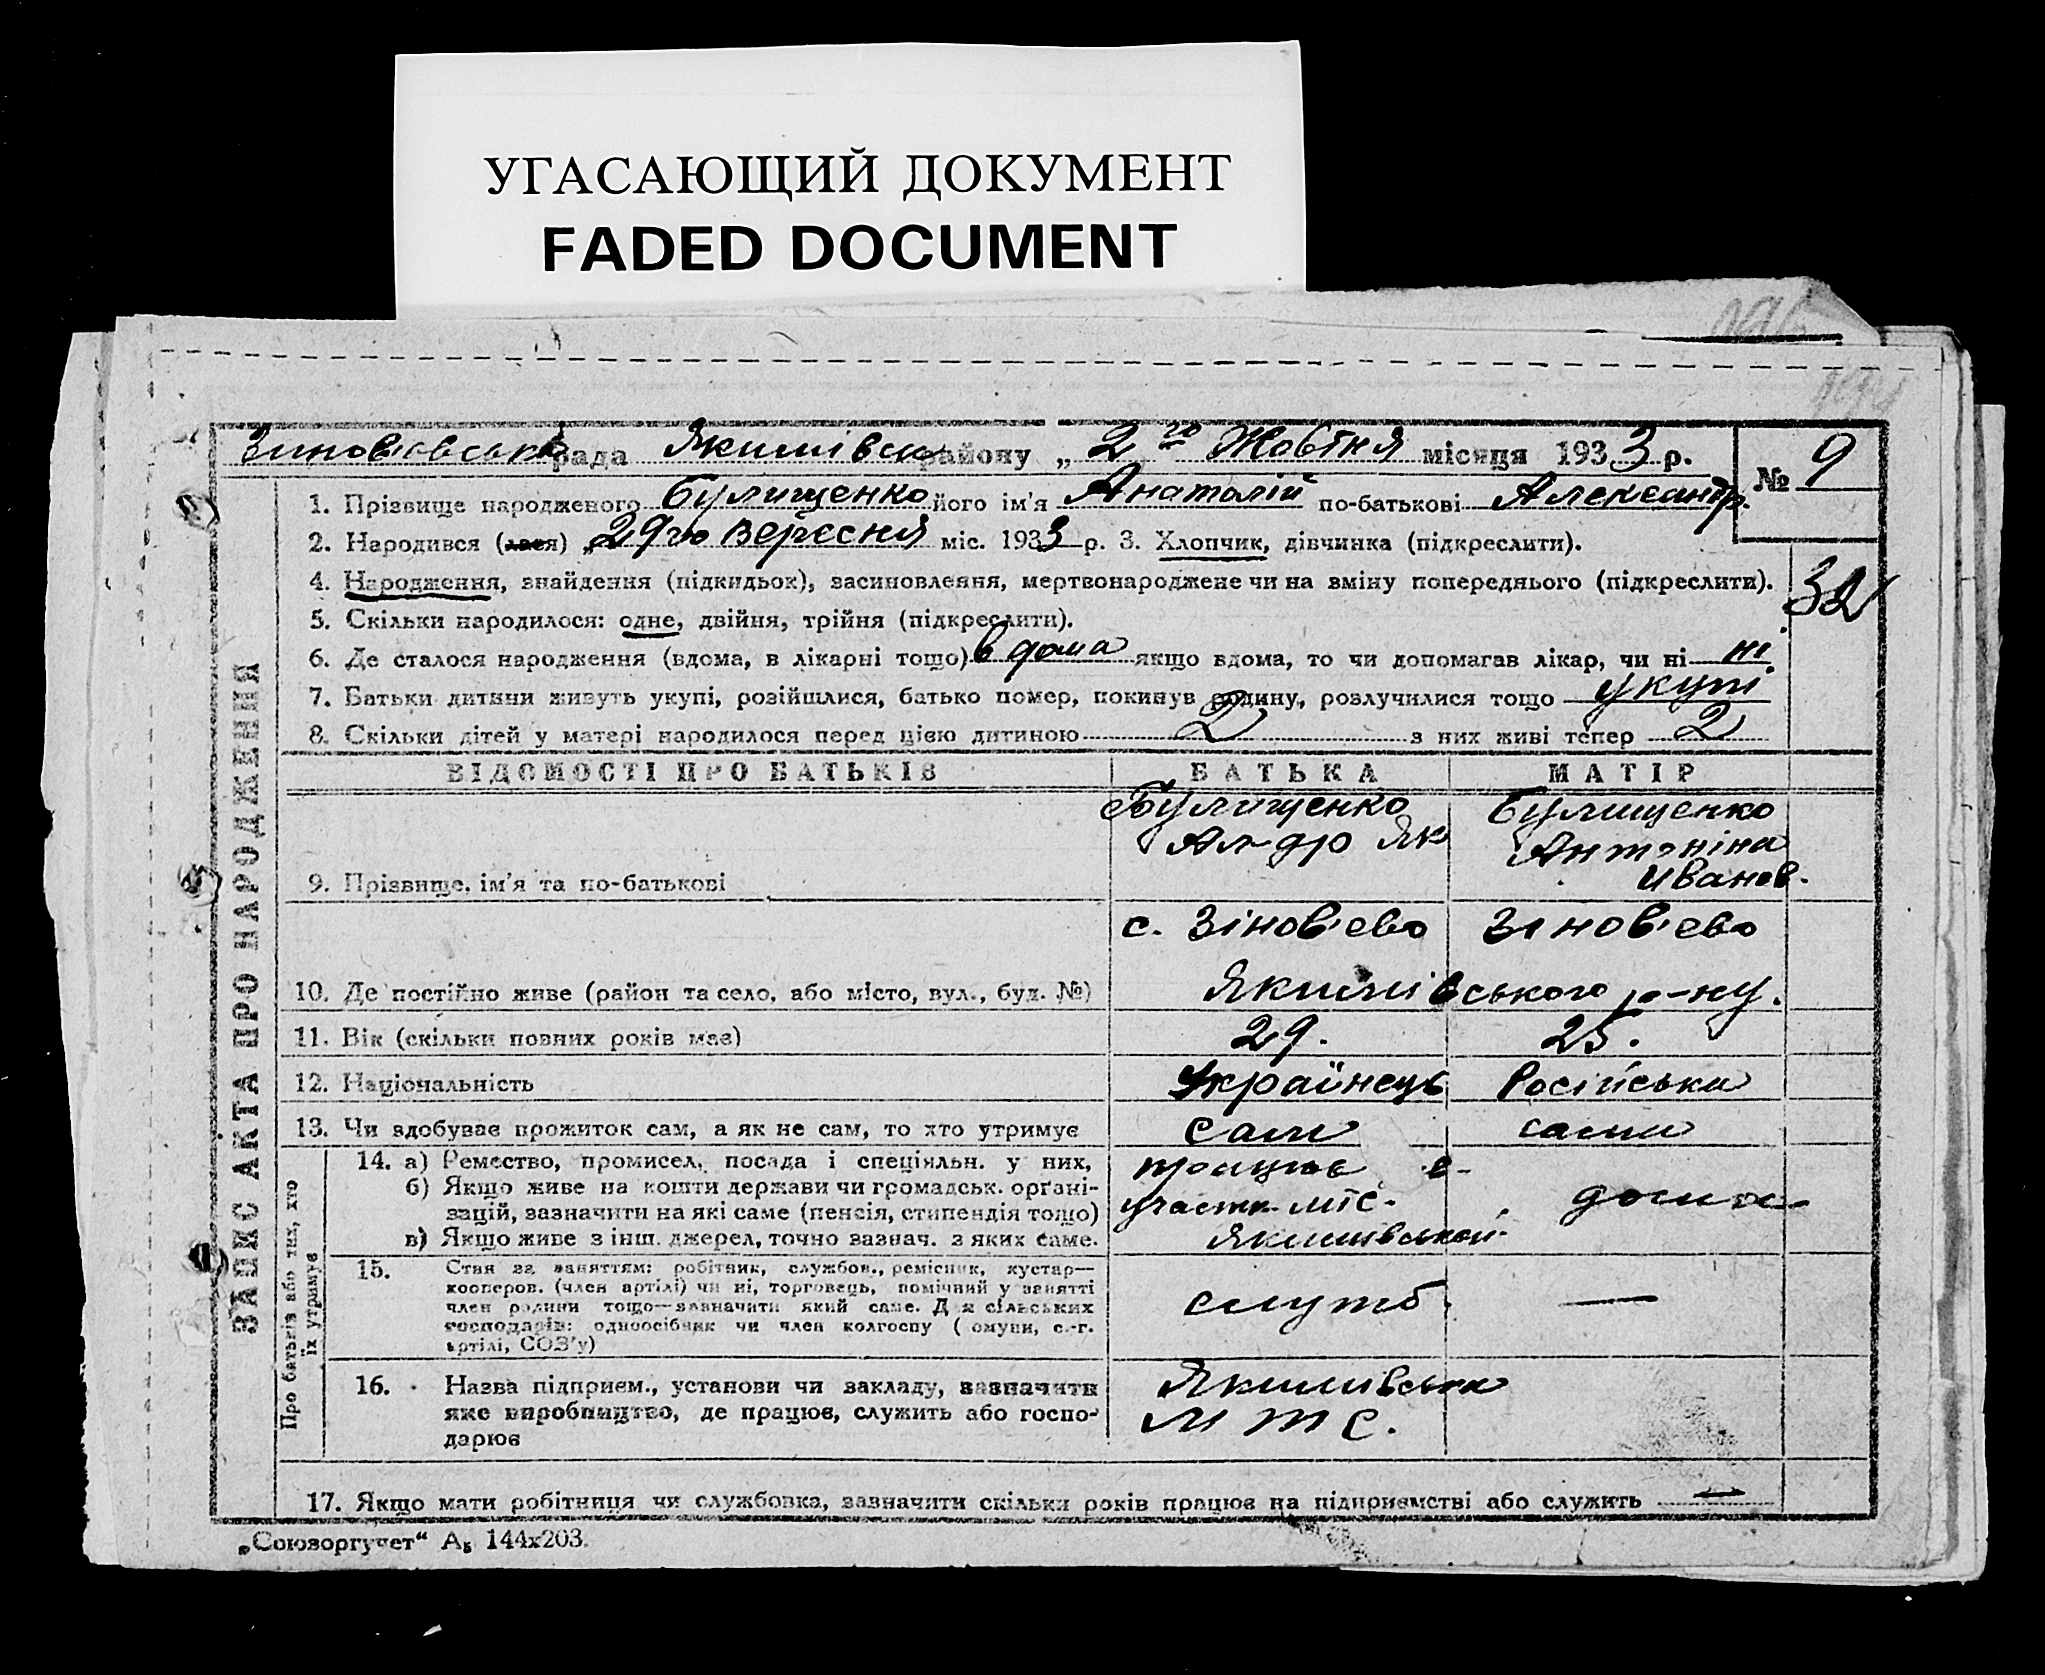 УГАСАЮЩИЙ ДОКУМЕНТ
FADED DOCUMENT
Зиновіовська рада Якимівськ району „ 2го Жовтня місяця 1933 р. № 9
1. Прізвище народженого Булищенко його ім'я Анатолій по-батькові Александр.
2. Народився (лася) „29го Вересня міс. 1933 р. 3. Хлопчик, дівчинка (підкреслити).
4. Народження, знайдення (підкидьок), засиновлення, мертвонароджене чи на зміну попереднього (підкреслити).
32
5. Скільки народилося: одне, двійня, трійня (підкреслити).
6. Де сталося народження (вдома, в лікарні тощо) в дома якщо вдома, то чи допомагав лікар, чи ні ні.
7. Батьки дитини живуть укупі, розійшлися, батько помер, покинув родину, розлучилися тощо укупі
8. Скільки дітей у матері народилося перед цією дитиною 2 з них живі тепер 2
ЗАПИС АКТА ПРО НАРОДЖЕННЯ
ВІДОМОСТІ ПРО БАТЬКІВ БАТЬКА МАТІР
Булищенко Булищенко
Ал-др Як Антоніна
Иванов.
9. Прізвище, ім'я та по-батькові
с. Зінов'ево Зінов'ево
10. Де постійно живе (район та село, або місто, вул., буд. №) Якимівського р-ну.
11. Вік (скільки повних років має) 29. 25.
12. Національність Українець Російська
13. Чи здобуває прожиток сам, а як не сам, то хто утримує сам сама
Про батьків або тих, хто
їх утримує
14. а) Ремество, промисел, посада і спеціяльн. у них, працює
б) Якщо живе на кошти держави чи громадськ. орґані-
зацій, зазначити на які саме (пенсія, стипендія тощо) участк. МТС. дома
в) Якщо живе з інш. джерел, точно зазнач. з яких саме.
15. Стан за заняттям: робітник, службов., ремісник, кустар—
кооперов. (член артілі) чи ні, торговець, помічний у занятті
член родини тощо—зазначити який саме. Для сільських служб. —
господарів: одноосібник чи член колгоспу (комуни, с.-г.
артілі, СОЗ'у)
16. Назва підприєм., установи чи закладу, зазначити Якимівська
яке виробництво, де працює, служить або госпо- МТС.
дарює
17. Якщо мати робітниця чи службовка, зазначити скільки років працює на підприємстві або служить —
„Союзоргучет“ А₅ 144х203.